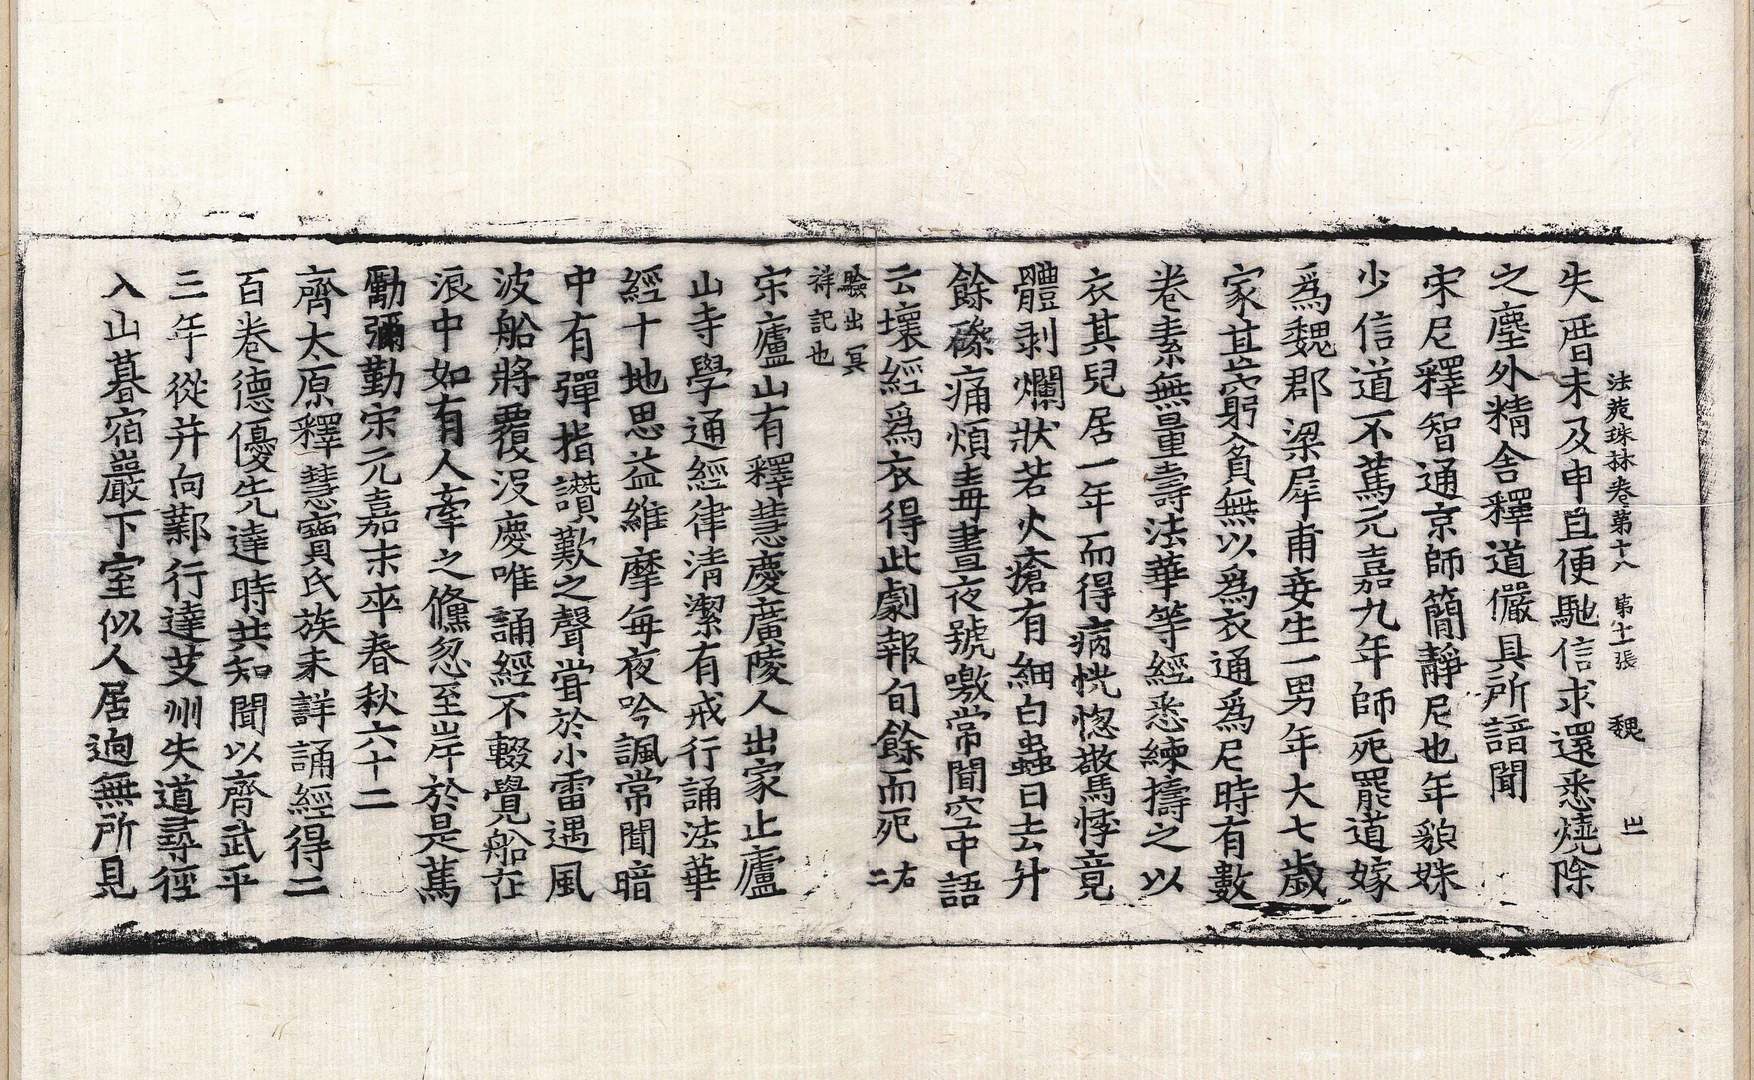 法苑珠林卷第十八 第十一張 魏 出
失厝未及申且便馳信求還悉燒除
之塵外精舍釋道儼具所諳聞
宋尼釋智通京師簡靜尼也年貌姝
少信道不篤元嘉九年師死罷道嫁
爲魏郡梁犀甫妾生一男年大七歲
家甚窮貧無以爲衣通爲尼時有數
卷素無量壽法華等經悉練擣之以
衣其兒居一年而得病恍惚驚悸竟
體剥爛狀若火瘡有細白蟲日去升
餘磣痛煩毒晝夜號噭常聞空中語
云壞經爲衣得此劇報旬餘而死右二
驗出冥
祥記也
宋廬山有釋慧慶廣陵人出家止廬
山寺學通經律清潔有戒行誦法華
經十地思益維摩每夜吟諷常聞暗
中有彈指讚歎之聲甞於小雷遇風
波船將覆没慶唯誦經不輟覺船在
浪中如有人牽之儵忽至岸於是篤
勵彌勤宋元嘉末卒春秋六十二
齊太原釋慧寶氏族未詳誦經得二
百卷德優先達時共知聞以齊武平
三年從并向鄴行達艾州失道尋徑
入山暮宿巖下室似人居迥無所見